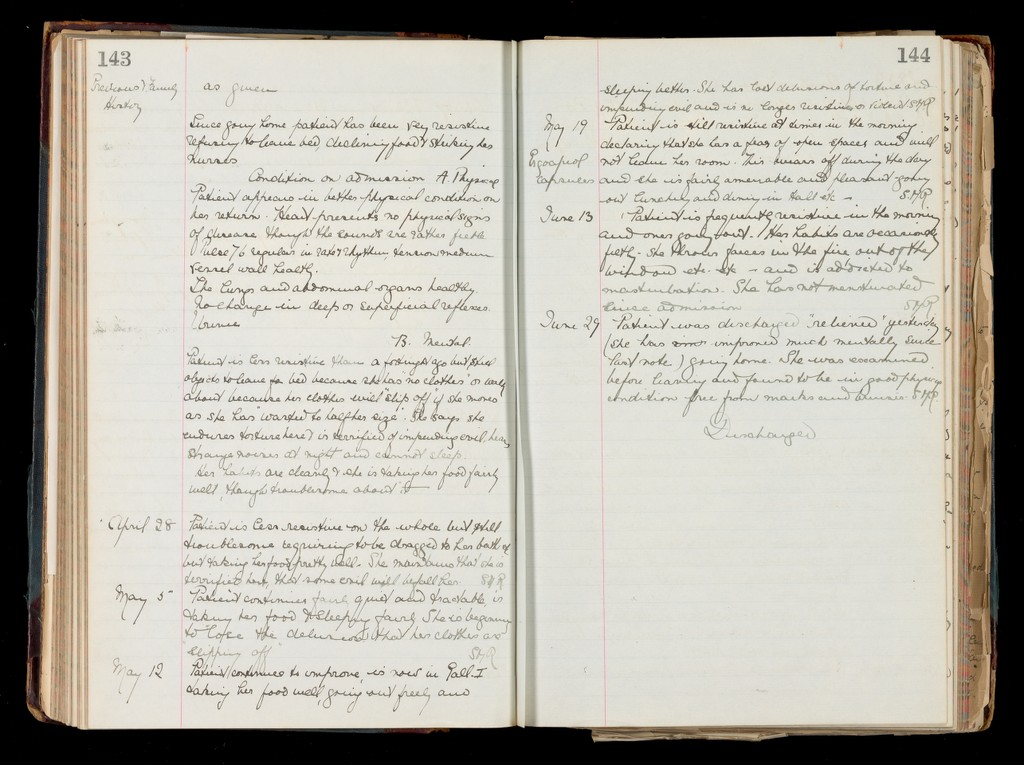 143
Previous & Family as given
History
Since going home patient has been very resistive
refusing to leave bed, declining food & striking her
nurses
Condition on admission A. Physical
Patient appears in better physical condition on
her return. Heart presents no physical signs
of disease though the sounds are rather feeble
Pulse 76 regular in rate & rhythm, tension medium
vessel wall healthy.
The lungs and abdominal organs healthy.
No change in deep or superficial reflexes
Urine
B. Mental.
Patient is less resistive than a fortnight ago but still
objects to leave her bed because she has "no clothes" or walk
about because her clothes will "slip off if she moves
as she has "wasted to half her size". She says she
endures torture here & is terrified of impending evil, hears
strange noises at night and cannot sleep.
Her habits are cleanly & she is taking her food fairly
well, though troublesome about it
April 28 Patient is less resistive on the whole but still
troublesome requiring to be dragged to her bath &
but taking her food pretty well. She maintains that she is
terrified here, that some evil will befall her SHR
May 5 Patient continues fairly quiet and tractable, is
taking her food & sleeping fairly. She is beginning
to lose the delusions that her clothes are
"slipping off" SHR
May 12 Patient continues to improve, is now in Gall. I
taking her food well, going out freely and
144
sleeping better. She has lost delusions of torture and
impending evil and is no longer resistive or violent SHR
May 19 Patient is still resistive at times in the morning
declaring that she has a fear of open spaces and will
not leave her room. This wears off during the day
Capsules and she is fairly amenable and pleasant going
out lunching and dining in Hall etc - SHR
June 13 Patient is frequently resistive in the morning
and ones going out. Her habits are occasionally
filthy - she throws faeces in the fire out of the
window etc. etc - and is addicted to
masturbation. She has not menstruated
since admission SHR
June 29 Patient was discharged "relieved" yesterday
(she has improved much mentally since
last note) going home. She was examined
before leaving and found to be in good physical
condition free from marks and bruises SHR
Discharged